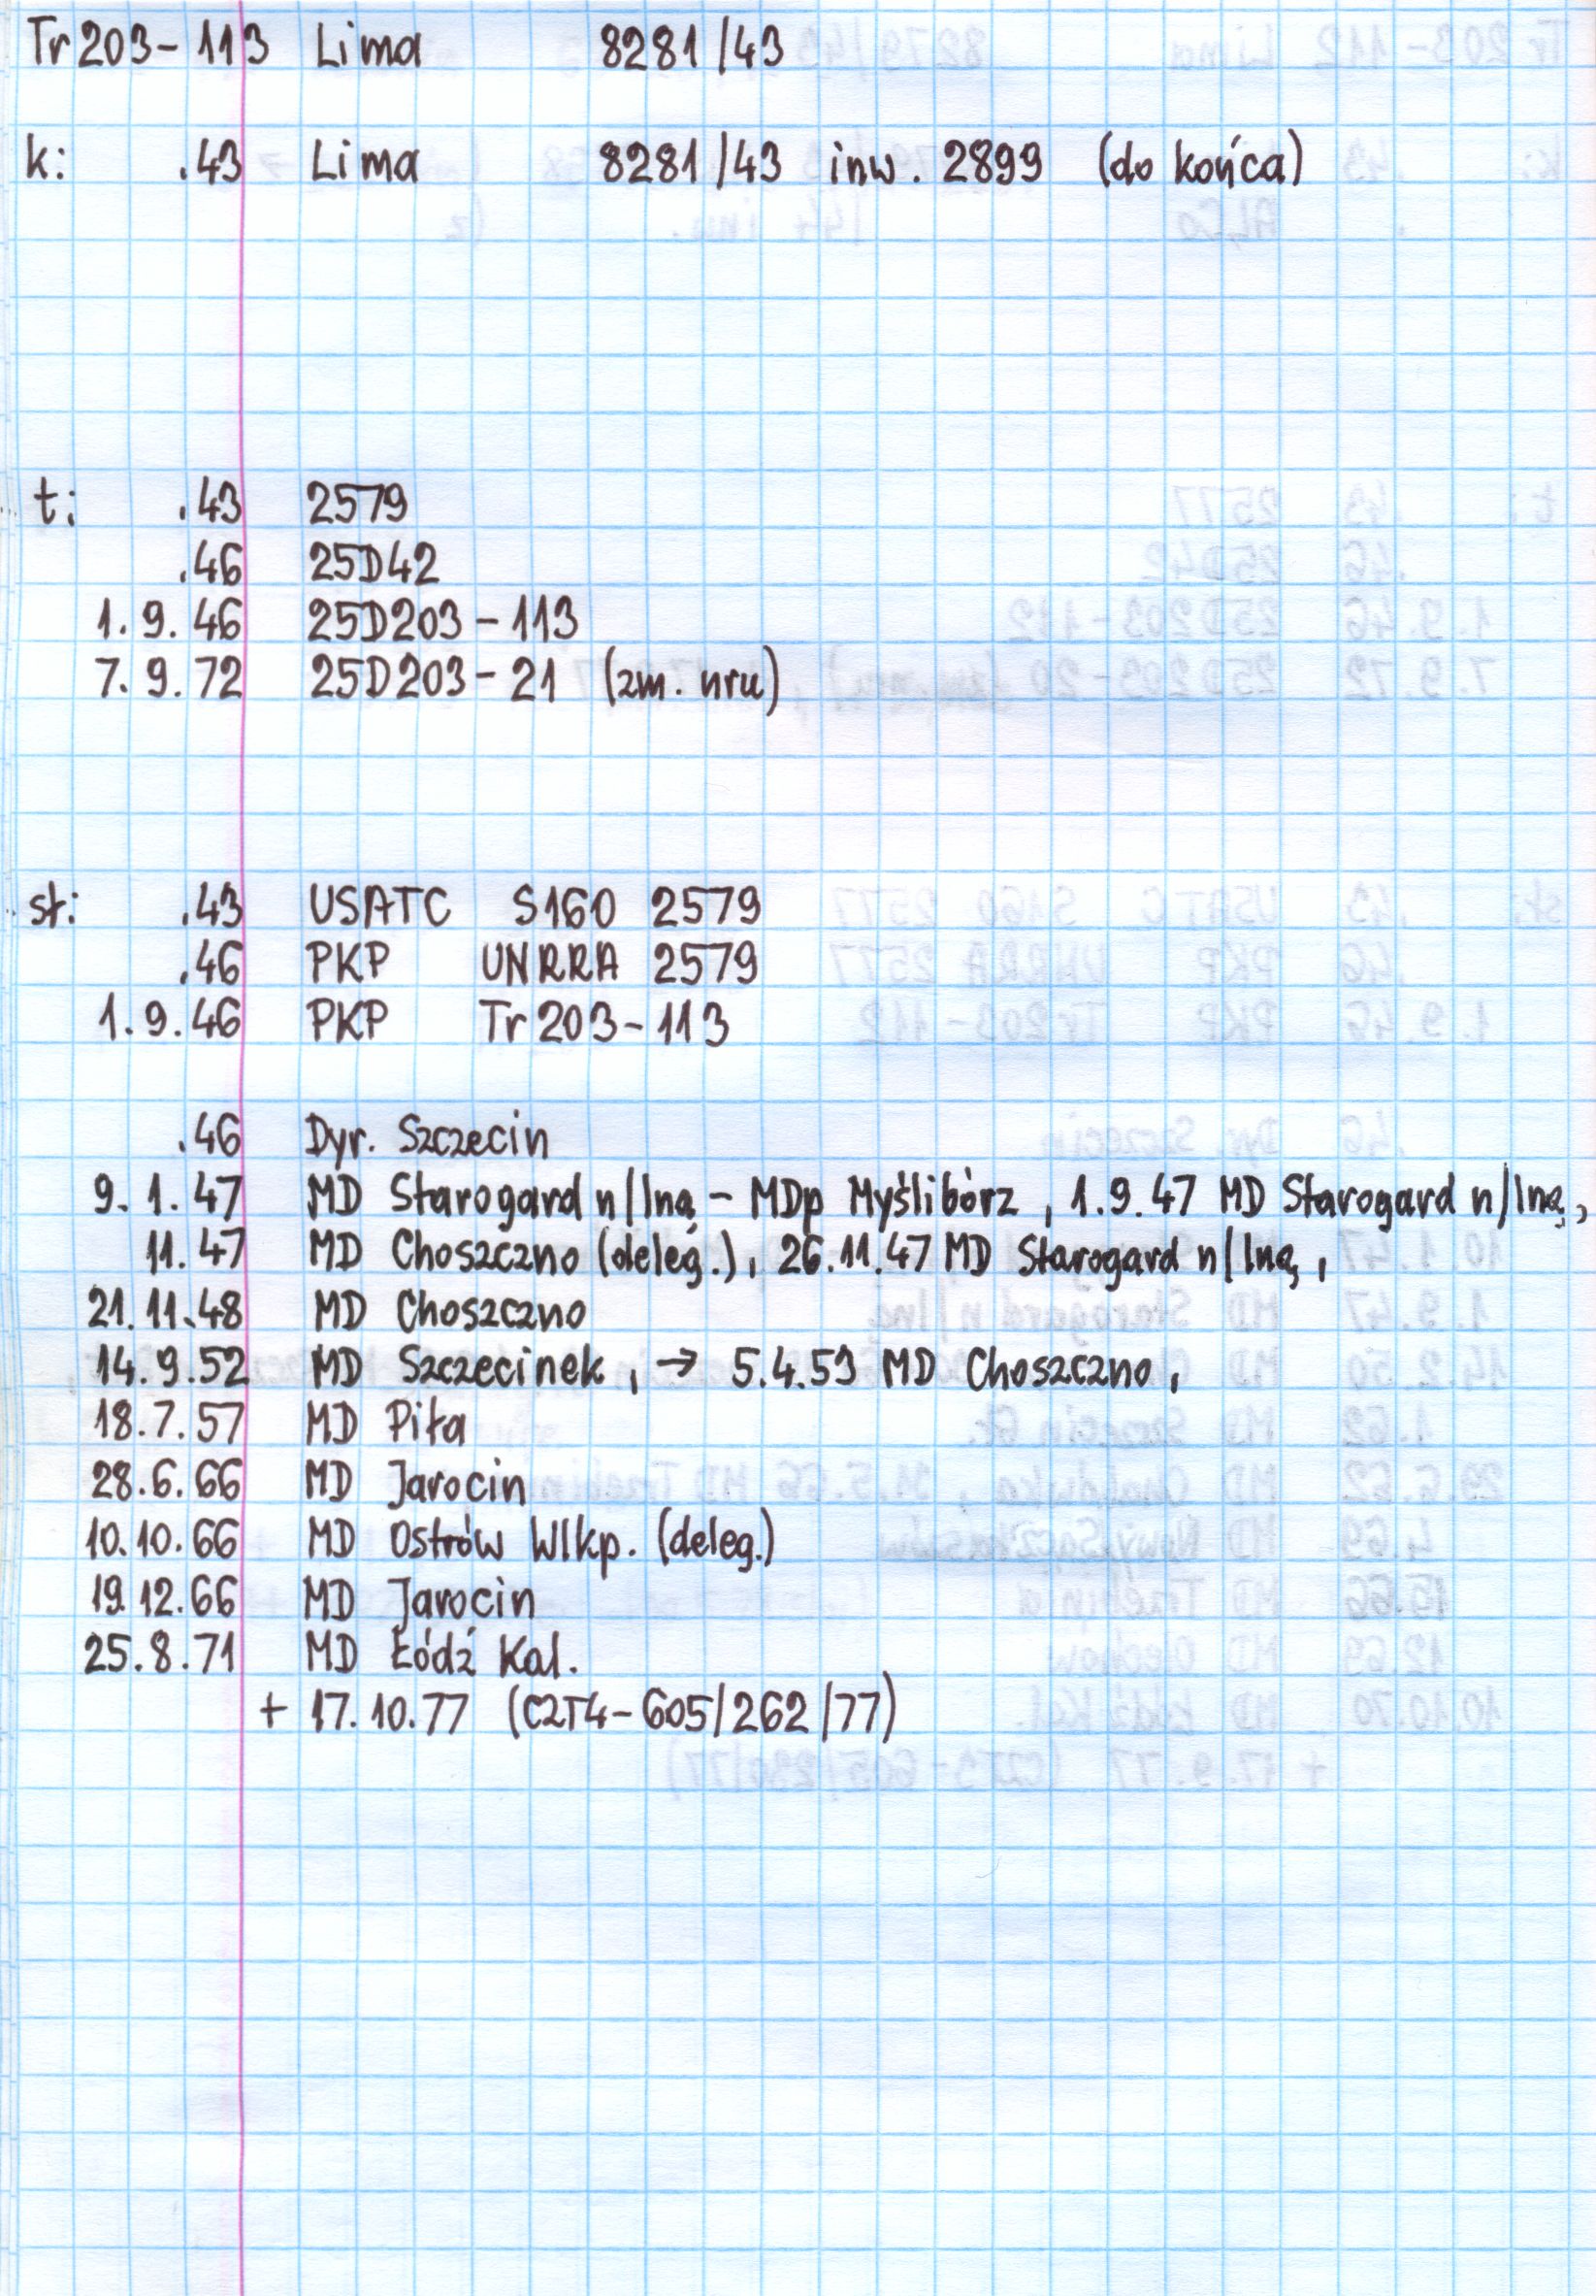 Tr203-113 Lima 8281/43
k: .43 Lima 8281/43 inw. 2899 (do końca)
t: .43 2579
.46 25D42
1.9.46 25D203-113
7.9.72 25D203-21 (zm. nru)
st: .43 USATC S160 2579
.46 PKP UNRRA 2579
1.9.46 PKP Tr203-113
.46 Dyr. Szczecin
9.1.47 MD Starogard n/Iną - MDp Myślibórz, 1.9.47 MD Starogard n/Iną,
11.47 MD Choszczno (deleg.), 26.11.47 MD Starogard n/Iną,
21.11.48 MD Choszczno
14.9.52 MD Szczecinek, → 5.4.53 MD Choszczno,
18.7.57 MD Piła
28.6.66 MD Jarocin
10.10.66 MD Ostrów Wlkp. (deleg.)
19.12.66 MD Jarocin
25.8.71 MD Łódź Kal.
+ 17.10.77 (C2T4-605/262/77)